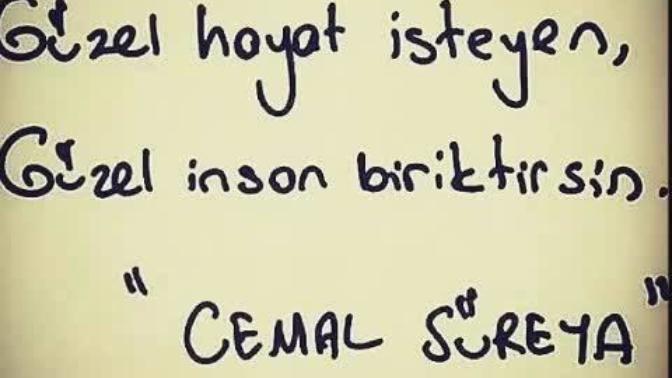 Güzel hayat isteyen,
Güzel insan biriktirsin.
"CEMAL SÜREYA"